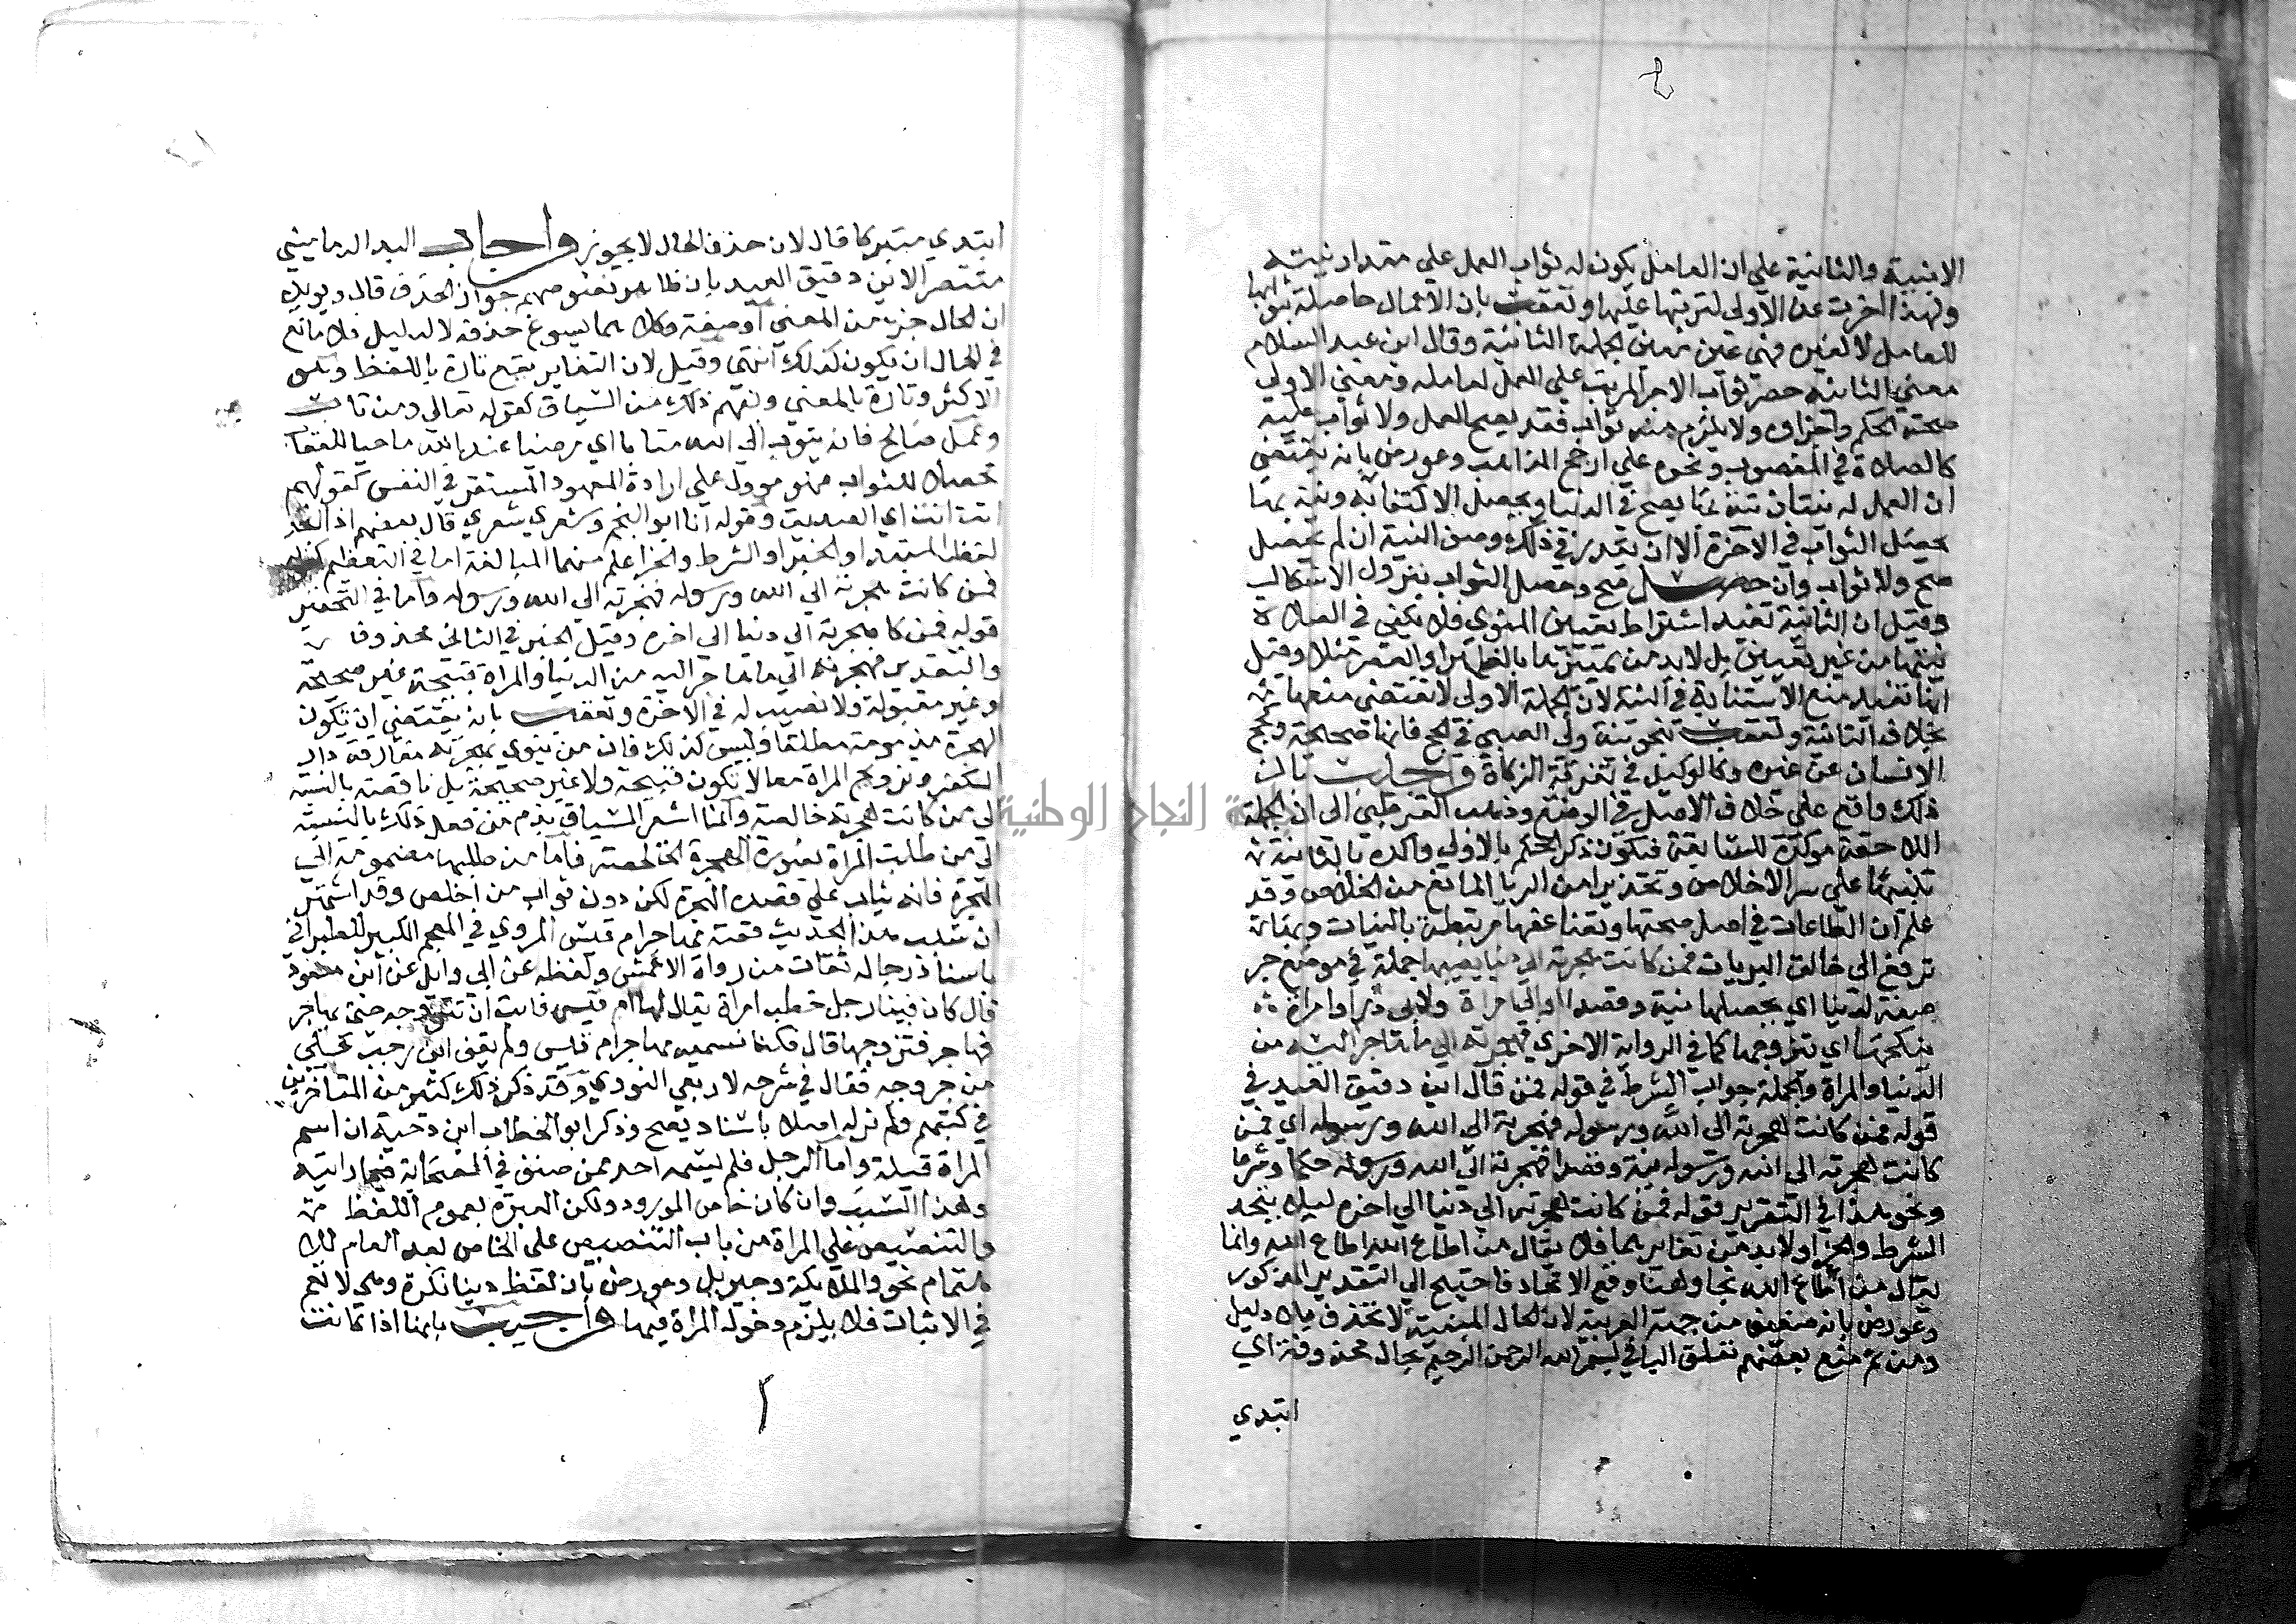 الا بنية والثانية علي ان العامل يكون له ثواب العمل علي مقدار نيته
ولهذا اخرت عن الاولي لترتبها عليها وتعقب بان الاعمال حاصلة بثوابها
للعامل لا لغيره فهي عين معني الجملة الثانية وقال ابن عبد السلام
معني الثانية حصر ثواب الاجر المرتب علي العمل لعامله ومعني الاولي
صحة الحكم واجزاوه ولا يلزم منه ثواب فقد يصح العمل ولا ثواب عليه
كالصلاة في المغصوب ونحوه علي ارجح المذاهب وعورض بانه يقتضي
ان العمل له نيتان نية بها يصح في الدنيا ويحصل الاكتفا به ونية بها
يحصل الثواب في الاخرة الا ان يقدر في ذلك وصف النية ان لم يحصل
صح ولا ثواب وان حصل صح وحصل الثواب فيزول الاشكال
وقيل ان الثانية تفيد اشتراط تعيين المنوي فلا يكفي في الصلاة
نيتها من غير تعيين بل لا بد من تمييزها بالظهر او العصر مثلا وقيل
انها تفيد منع الاستنابة في النية لان الجملة الاولي لا تقتضي منعها
بخلاف الثانية وتعقب بنحو نية ولي الصبي في الحج فانها صحيحة وحج
الانسان عن غيره وكالوكيل في تفرقة الزكاة واجاب بان
ذلك واقع علي خلاف الاصل في الوضع وذهب القرطبي الي ان الجملة
اللاحقة موكدة للسابقة فيكون ذكر الحكم بالاولي واكده بالثانية
تنبيها علي سر الاخلاص وتحذيرا من الريا المانع من الخلاص وقد
علم ان الطاعات في اصل صحتها وتضاعفها مرتبطة بالنيات وبها
ترفع الي خالق البريات فمن كانت هجرته الي دنيا يصيبها جملة في موضع جر
صفة لدنيا اي يحصلها نية وقصدا او الي امراة ولابي ذر او امراة
ينكحها اي يتزوجها كما في الرواية الاخري فهجرته الي ما هاجر اليه من
الدنيا والمراة والجملة جواب الشرط في قوله فمن قال ابن دقيق العيد في
قوله فمن كانت هجرته الي الله ورسوله فهجرته الي الله ورسوله اي فمن
كانت هجرته الي الله ورسوله نية وقصدا فهجرته الي الله ورسوله حكما وشرعا
ونحو هذا في التقرير قوله فمن كانت هجرته الي دنيا الي اخره ليلا يتحد
الشرط والجزا ولا بد من تغايرهما فلا يقال من اطاع الله اطاع الله وانما
يقال من اطاع الله نجا وهنا وقع الاتحاد فاحتيج الي التقدير المذكور
وعورض بانه ضعيف من جهة العربية لان الحال المبينة لا تحذف بلا دليل
ومن ثم منع بعضهم تعلق البا في بسم الله الرحمن الرحيم بحال محذوفة اي
ابتدي
ابتدي متبركا قال لان حذف الحال لا يجوز واجاب البدر الدماميني
منتصرا لابن دقيق العيد بان ظاهر نصوصهم جواز الحذف قال ويويده
ان الحال خبر من المعني او صفة وكلاهما يسوغ حذفه لا لدليل فلا مانع
في الحال ان يكون كذلك انتهي وقيل لان التغاير يقع تارة باللفظ وهو
الاكثر وتارة بالمعني ويفهم ذلك من السياق كقوله تعالي ومن تاب
وعمل صالحا فانه يتوب الي الله متابا اي مرضيا عند الله ماحيا للعقاب
محصلا للثواب فهو موول علي ارادة المعهود المستقر في النفس كقولهم
انت انت اي الصديق وقوله انا ابو النجم وشعري شعري قال بعضهم اذا اتحد
لفظ المبتدا والخبر او الشرط والجزا علم منهما المبالغة اما في التعظيم كقوله
فمن كانت هجرته الي الله ورسوله فهجرته الي الله ورسوله واما في التحقير
قوله فمن كا هجرته الي دنيا الي اخره وقيل الخبر في الثاني محذوف
والتقدير فهجرته الي ما هاجر اليه من الدنيا والمراة قبيحة غير صحيحة
وغير مقبولة ولا نصيب له في الاخرة وتعقب بانه يقتضي ان تكون
الهجرة مذمومة مطلقا وليس كذلك فان من ينوي بهجرته مفارقة دار
الكفر وتزويج المراة معا لا تكون قبيحة ولا غير صحيحة بل ناقصة بالنسبة
الي من كانت هجرته خالصة وانما اشعر السياق بذم من فعل ذلك بالنسبة
الي من طلب المراة بصورة الهجرة الخالصة فاما من طلبها مضمومة الي
الهجرة فانه يثاب علي قصده الهجرة لكن دون ثواب من اخلص وقد اشتهر
ان سبب هذا الحديث قصة مهاجر ام قيس المروي في المعجم الكبير للطبراني
باسناد رجاله ثقات من رواة الاعمش ولفظه عن ابي وايل عن ابن مسعود
قال كان فينا رجل خطب امراة يقال لها ام قيس فابت ان تتزوجه حتي يهاجر
فهاجر فتزوجها قال فكنا نسميه مهاجر ام قيس ولم يقف ابن رجب علي
من خرجه فقال في شرحه لاربعي النووي وقد ذكر ذلك كثير من المتاخرين
في كتبهم ولم نر له اصلا باسناد يصح وذكر ابو الخطاب ابن دحية ان اسم
المراة قيلة واما الرجل فلم يسمه احد ممن صنف في الصحابة فيما رايته
وهذا السبب وان كان خاص المورد ولكن العبرة بعموم اللفظ
والتنصيص علي المراة من باب التنصيص علي الخاص بعد العام للا
هتمام نحو والملايكة وجبريل وعورض بان لفظ دنيا نكرة وهي لا تعم
في الاثبات فلا يلزم دخول المراة فيها واجيب بانها اذا كانت
جامعة النجاح الوطنية